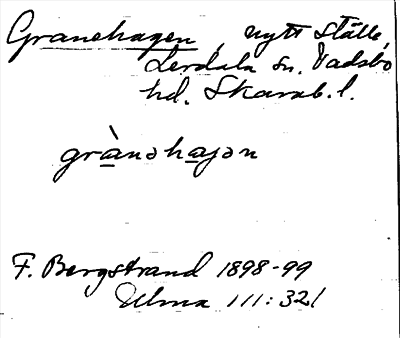 Granehagen, nytt ställe,
Lerdala sn. Vadsbo
hd. Skarab. l.
grànəhaɟən
F. Bergstrand 1898-99
Ulma 111:321